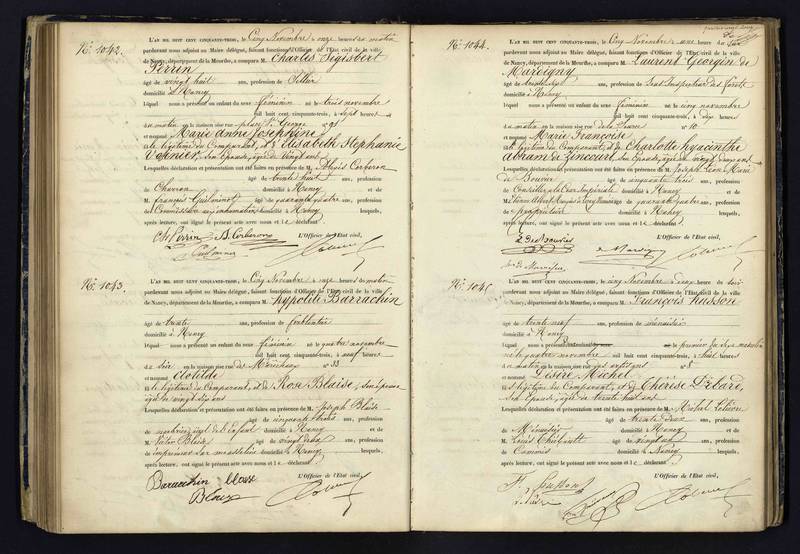 N.º 1042.
L'AN MIL HUIT CENT CINQUANTE-TROIS, le Cinq Novembre à onze heures du matin
pardevant nous adjoint au Maire délégué, faisant fonctions d'Officier de l'Etat civil de la ville
de Nancy, département de la Meurthe, a comparu M. Charles Segisbert
Perrin
âgé de vingt huit ans, profession de Sellier
domicilié à Nancy
lequel nous a présenté un enfant du sexe féminin né le trois novembre
mil huit cent cinquante-trois, à sept heures
du matin en la maison sise place St George n°
et nommé Marie Anne Josephine
fille légitime du Comparant, et d'Elisabeth Stéphanie
Vagner, son épouse, âgée de vingt ans
Lesquelles déclaration et présentation ont été faites en presence de M. Alexis Corberon
âgé de trente huit ans, profession
de Charron domicilié à Nancy et de
M. François Guilminot âgé de quarante quatre ans, profession
de Commissaire domicilié à Nancy lesquels,
après lecture, ont signé le présent acte avec nous et le déclarant
L'Officier de l'Etat civil,
Ch Perrin A. Corberon
N.º 1043.
L'AN MIL HUIT CENT CINQUANTE-TROIS, le Cinq Novembre à onze heures du matin
pardevant nous adjoint au Maire délégué, faisant fonctions d'Officier de l'Etat civil de la ville
de Nancy, département de la Meurthe, a comparu M. hypolite Barrachin
âgé de trente ans, profession de ferblantier
domicilié à Nancy
lequel nous a présenté un enfant du sexe féminin né le quatre novembre
mil huit cent cinquante-trois, à neuf heures
du soir en la maison sise rue de n° 33
et nommé Clotilde
fille légitime du Comparant, et de Rose Blaise, son épouse
âgée de vingt six ans
Lesquelles déclaration et présentation ont été faites en présence de M. Joseph Blaise
âgé de cinquante trois ans, profession
de domicilié à Nancy et de
M. Victor Blaise âgé de vingt deux ans, profession
de imprimeur domicilié à Nancy lesquels,
après lecture, ont signé le présent acte avec nous et le déclarant
L'Officier de l'Etat civil,
Barrachin blaise
N.º 1044.
L'AN MIL HUIT CENT CINQUANTE-TROIS, le Cinq Novembre à une heure du soir
pardevant nous adjoint au Maire délégué, faisant fonctions d'Officier de l'Etat civil de la ville
de Nancy, département de la Meurthe, a comparu M. Laurent Georgin de
Mardigny
âgé de trente sept ans, profession de Sous Inspecteur des forêts
domicilié à Nancy
lequel nous a présenté un enfant du sexe féminin né le cinq novembre
mil huit cent cinquante-trois, à dix heures
du matin en la maison sise n° 10
et nommé Marie Françoise
fille légitime du Comparant, et de Charlotte hyacinthe
abram de Zincourt, son épouse, âgée de vingt deux ans
Lesquelles déclaration et présentation ont été faites en présence de M. Joseph Léon Marie
âgé de cinquante trois ans, profession
de Conseiller à la Cour Impériale domicilié à Nancy et de
âgé de quarante quatre ans, profession
de propriétaire domicilié à Nancy lesquels,
après lecture, ont signé le présent acte avec nous et le déclarant
L'Officier de l'Etat civil,
de Mardigny
N.º 1045
L'AN MIL HUIT CENT CINQUANTE-TROIS, le cinq Novembre à deux heures du soir
pardevant nous adjoint au Maire délégué, faisant fonctions d'Officier de l'Etat civil de la ville
de Nancy, département de la Meurthe, a comparu M. François husson
âgé de trente neuf ans, profession de menuisier
domicilié à Nancy
lequel nous a présenté
né le quatre novembre mil huit cent cinquante-trois, à huit heures
du matin en la maison sise rue des artisans n° 8
et nommé Désiré Michel
fils légitime du Comparant, et de Thérèse Delard,
son épouse, âgée de trente huit ans
Lesquelles déclaration et présentation ont été faites en présence de M. Michel Lelièvre
âgé de trente deux ans, profession
de Menuisier domicilié à Nancy et de
M. Louis Thiébault âgé de vingt six ans, profession
de Commis domicilié à Nancy lesquels,
après lecture, ont signé le présent acte avec nous et le déclarant
L'Officier de l'Etat civil,
F. husson